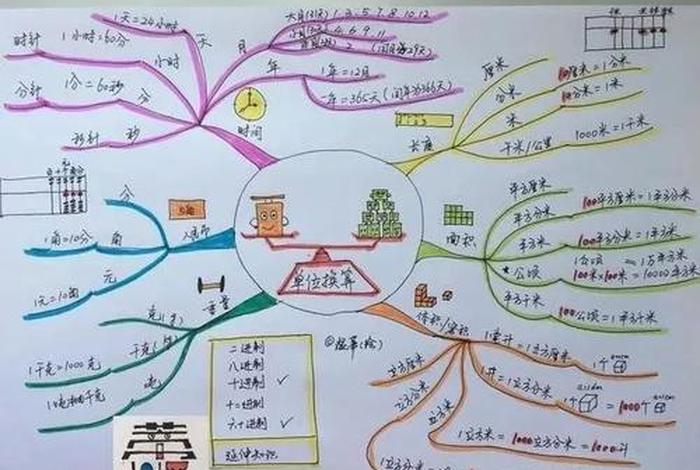 1天=24小时
天
时针
1小时=60分
小时
分针
1分=60秒
分
秒针
秒
时间
月
大月(31天) 1、3、5、7、8、10、12
4、6、9、11
2 (闰月29天)
年
1年=12月
一年=365天(闰年为366天)
长度
厘米
10厘米=1分米
分米
10分米=1米
米
千米/公里
1000米=1千米
面积
平方厘米
100平方厘米=1平方分米
平方分米
100平方分米=1平方米
平方米
公顷
1公顷=1万平方米
100米×100米=10000平方米
平方千米
100公顷=1平方千米
体积/容积
1毫升=1立方厘米
1个
1升=1立方分米
1个
=1000个
立方厘米
立方分米
立方米
1立方米=1000立方分米=1000升
人民币
5角
分
1角=10分
角
元
1元=10角
重量
克(g)
千克
1千克=1000克
吨
单位换算
二进制
八进制
十进制 ✓
十二进制
六十进制 ✓
延伸知识